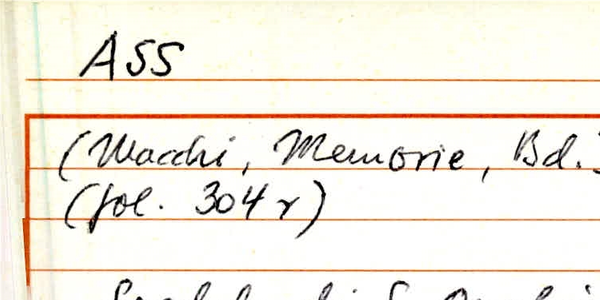 ASS
(Macchi, Memorie, Bd.
(fol. 304r)